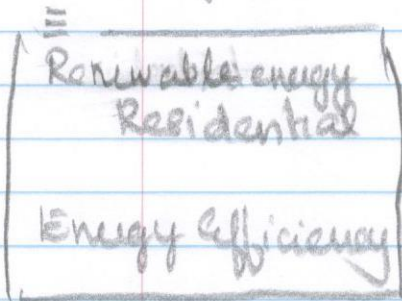 III
Renewable energy
Residential
Energy Efficiency